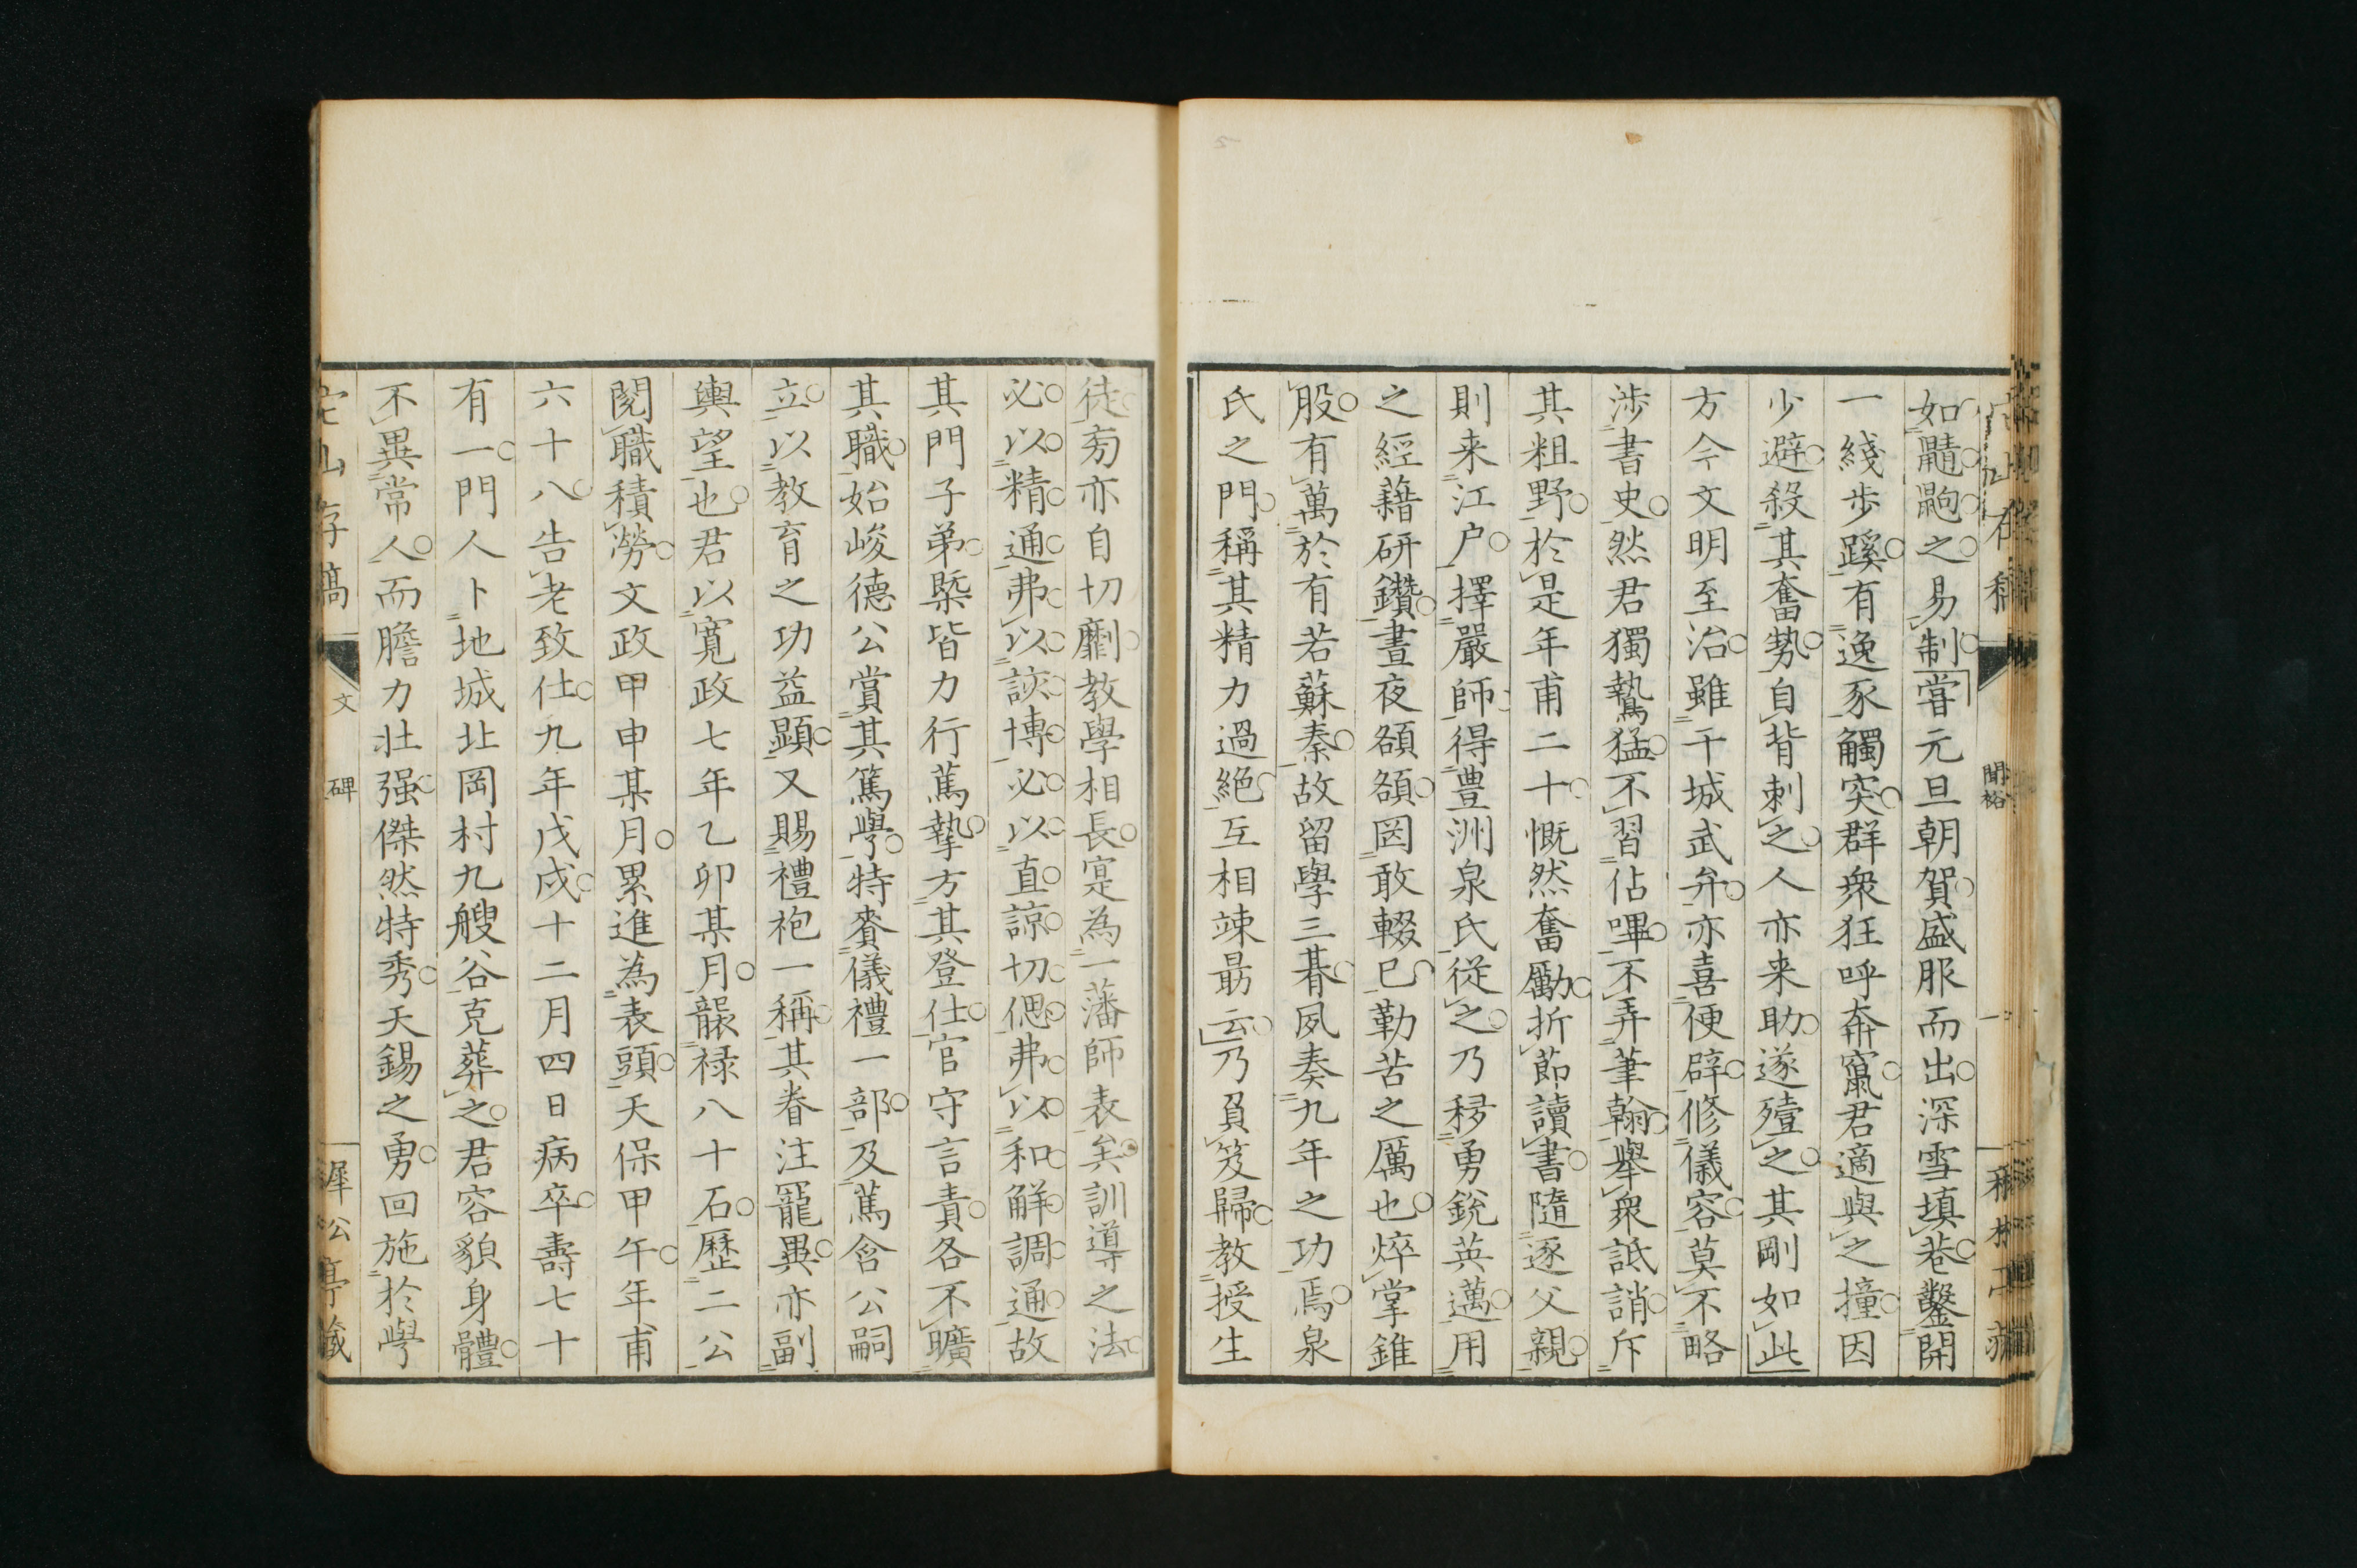 如䶑䶌之易制嘗元旦朝賀盛服而出深雪填巷鑿開
一綫歩蹊有逸豕觸突群衆狂呼奔竄君適與之撞因
少避殺其奮勢自背刺之人亦来助遂殪之其剛如此
方今文明至治雖干城武弁亦喜便辟修儀容莫不略
渉書史然君獨鷙猛不習佔嗶不弄筆翰舉衆詆誚斥
其粗野於是年甫二十慨然奮勵折節讀書隨逐父親
則来江户擇嚴師得豊洲泉氏従之乃移勇鋭英邁用
之經藉研鑽晝夜頟頟罔敢輟已勤苦之厲也焠掌錐
股有萬於有若蘇秦故留學三朞夙奏九年之功焉泉
氏之門稱其精力過絶互相竦勗云乃負笈歸教授生
徒旁亦自切劘教學相長寔為一藩師表矣訓導之法
必以精通弗以該博必以直諒切偲弗以和觧調通故
其門子弟槩皆力行蔫摯方其登仕官守言責各不曠
其職始峻德公賞其篤學特賚儀禮一部及蔫含公嗣
立以教育之功益顕又賜禮袍一稱其眷注寵異亦副
輿望也君以寛政七年乙卯某月襲禄八十石歴二公
閲職積勞文政甲申某月累進為表頭天保甲午年甫
六十八告老致仕九年戊戌十二月四日病卒壽七十
有一門人卜地城北岡村九艘谷克葬之君容貌身體
不異常人而膽力壮强傑然特秀天錫之勇回施於學
存稿
文
碑
犀公亭藏